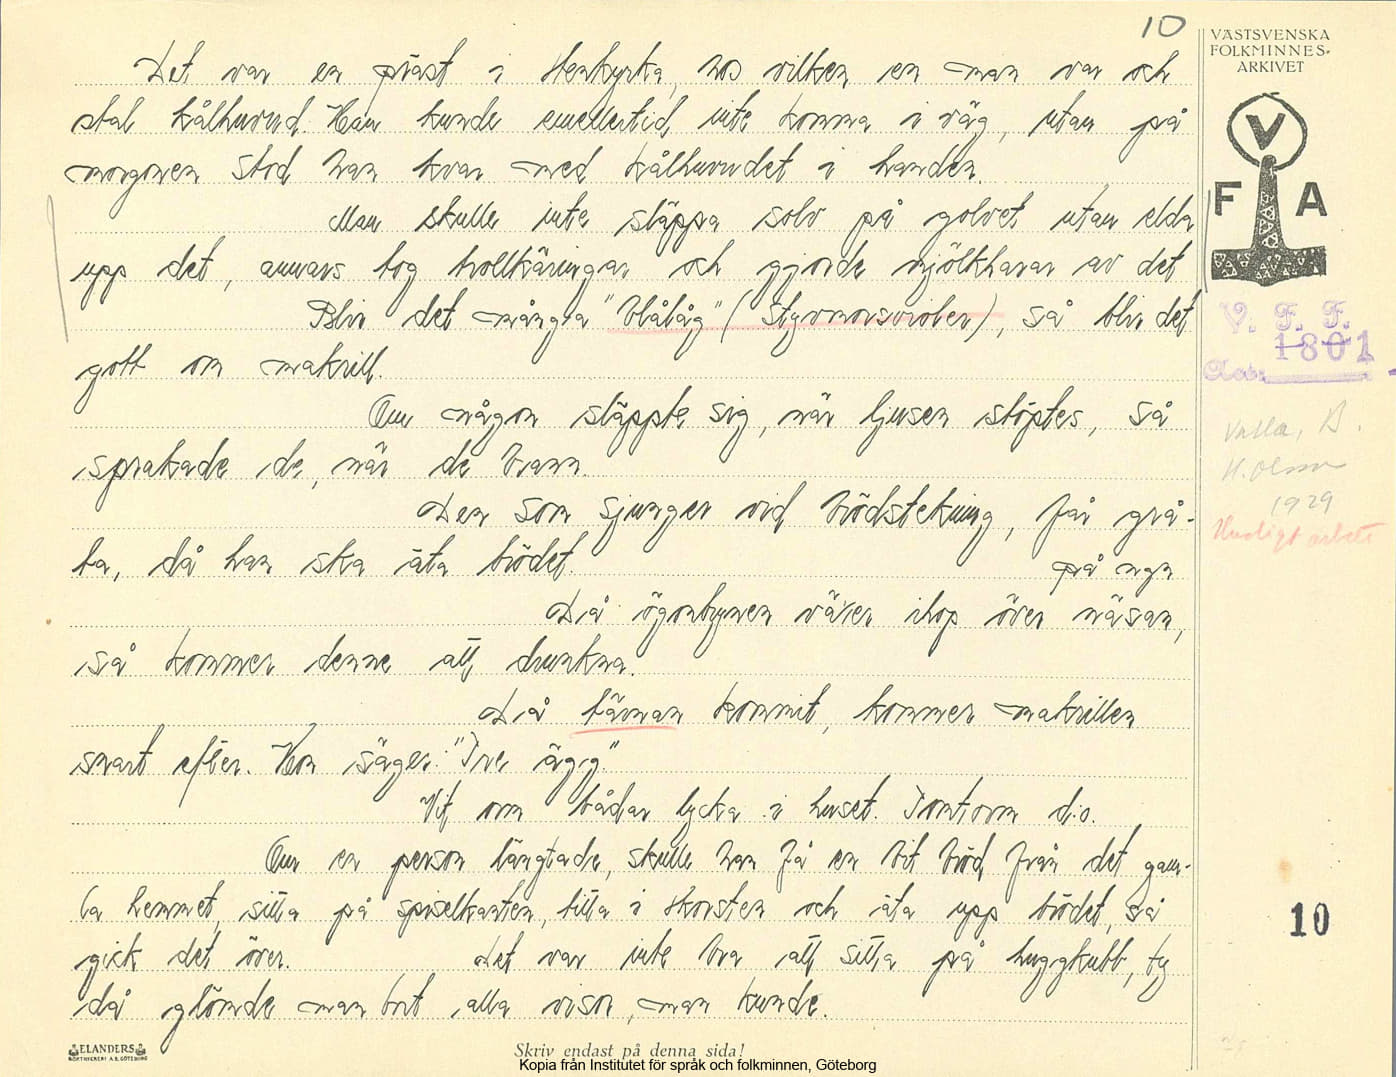 10
VÄSTSVENSKA
FOLKMINNES-
ARKIVET
Det var en präst i Stenkyrka, hos vilken en man var och
stal kålhuvud. Han kunde emellertid inte komma i väg, utan på
morgonen stod han kvar med kålhuvudet i handen.
Man skulle inte släppa solv på golvet utan elda
upp det, annars tog trollkäringar och gjorde mjölkharar av det
Blir det många "blålåg" (Styvmorsvioler), så blir det
gott om makrill.
Om någon släppte sig, när ljusen stöptes, så
sprakade de, när de brann.
Den som sjunger vid brödstekning, får grå-
ta, då han ska äta brödet.
på ngn
Då ögonbrynen växer ihop över näsan,
så kommer denne att drunkna.
Då tärnan kommit, kommer makrillen
snart efter. Hon säger: "Tre ägg"
Vit orm bådar lycka i huset. Tomtorm d:o.
Om en person längtade, skulle han få en bit bröd från det gam-
la hemmet, sitta på spiselkanten, titta i skorsten och äta upp brödet, så
gick det över. Det var inte bra att sitta på huggkubb, ty
då glömde man bort alla visor, man kunde.
V
F A
V. F. F.
1801
Acc.
Valla, B.
H. Olsson
1929
Husligt arbete
10
ELANDERS
BOKTRYCKERI A.B. GÖTEBORG
Skriv endast på denna sida!
Kopia från Institutet för språk och folkminnen, Göteborg